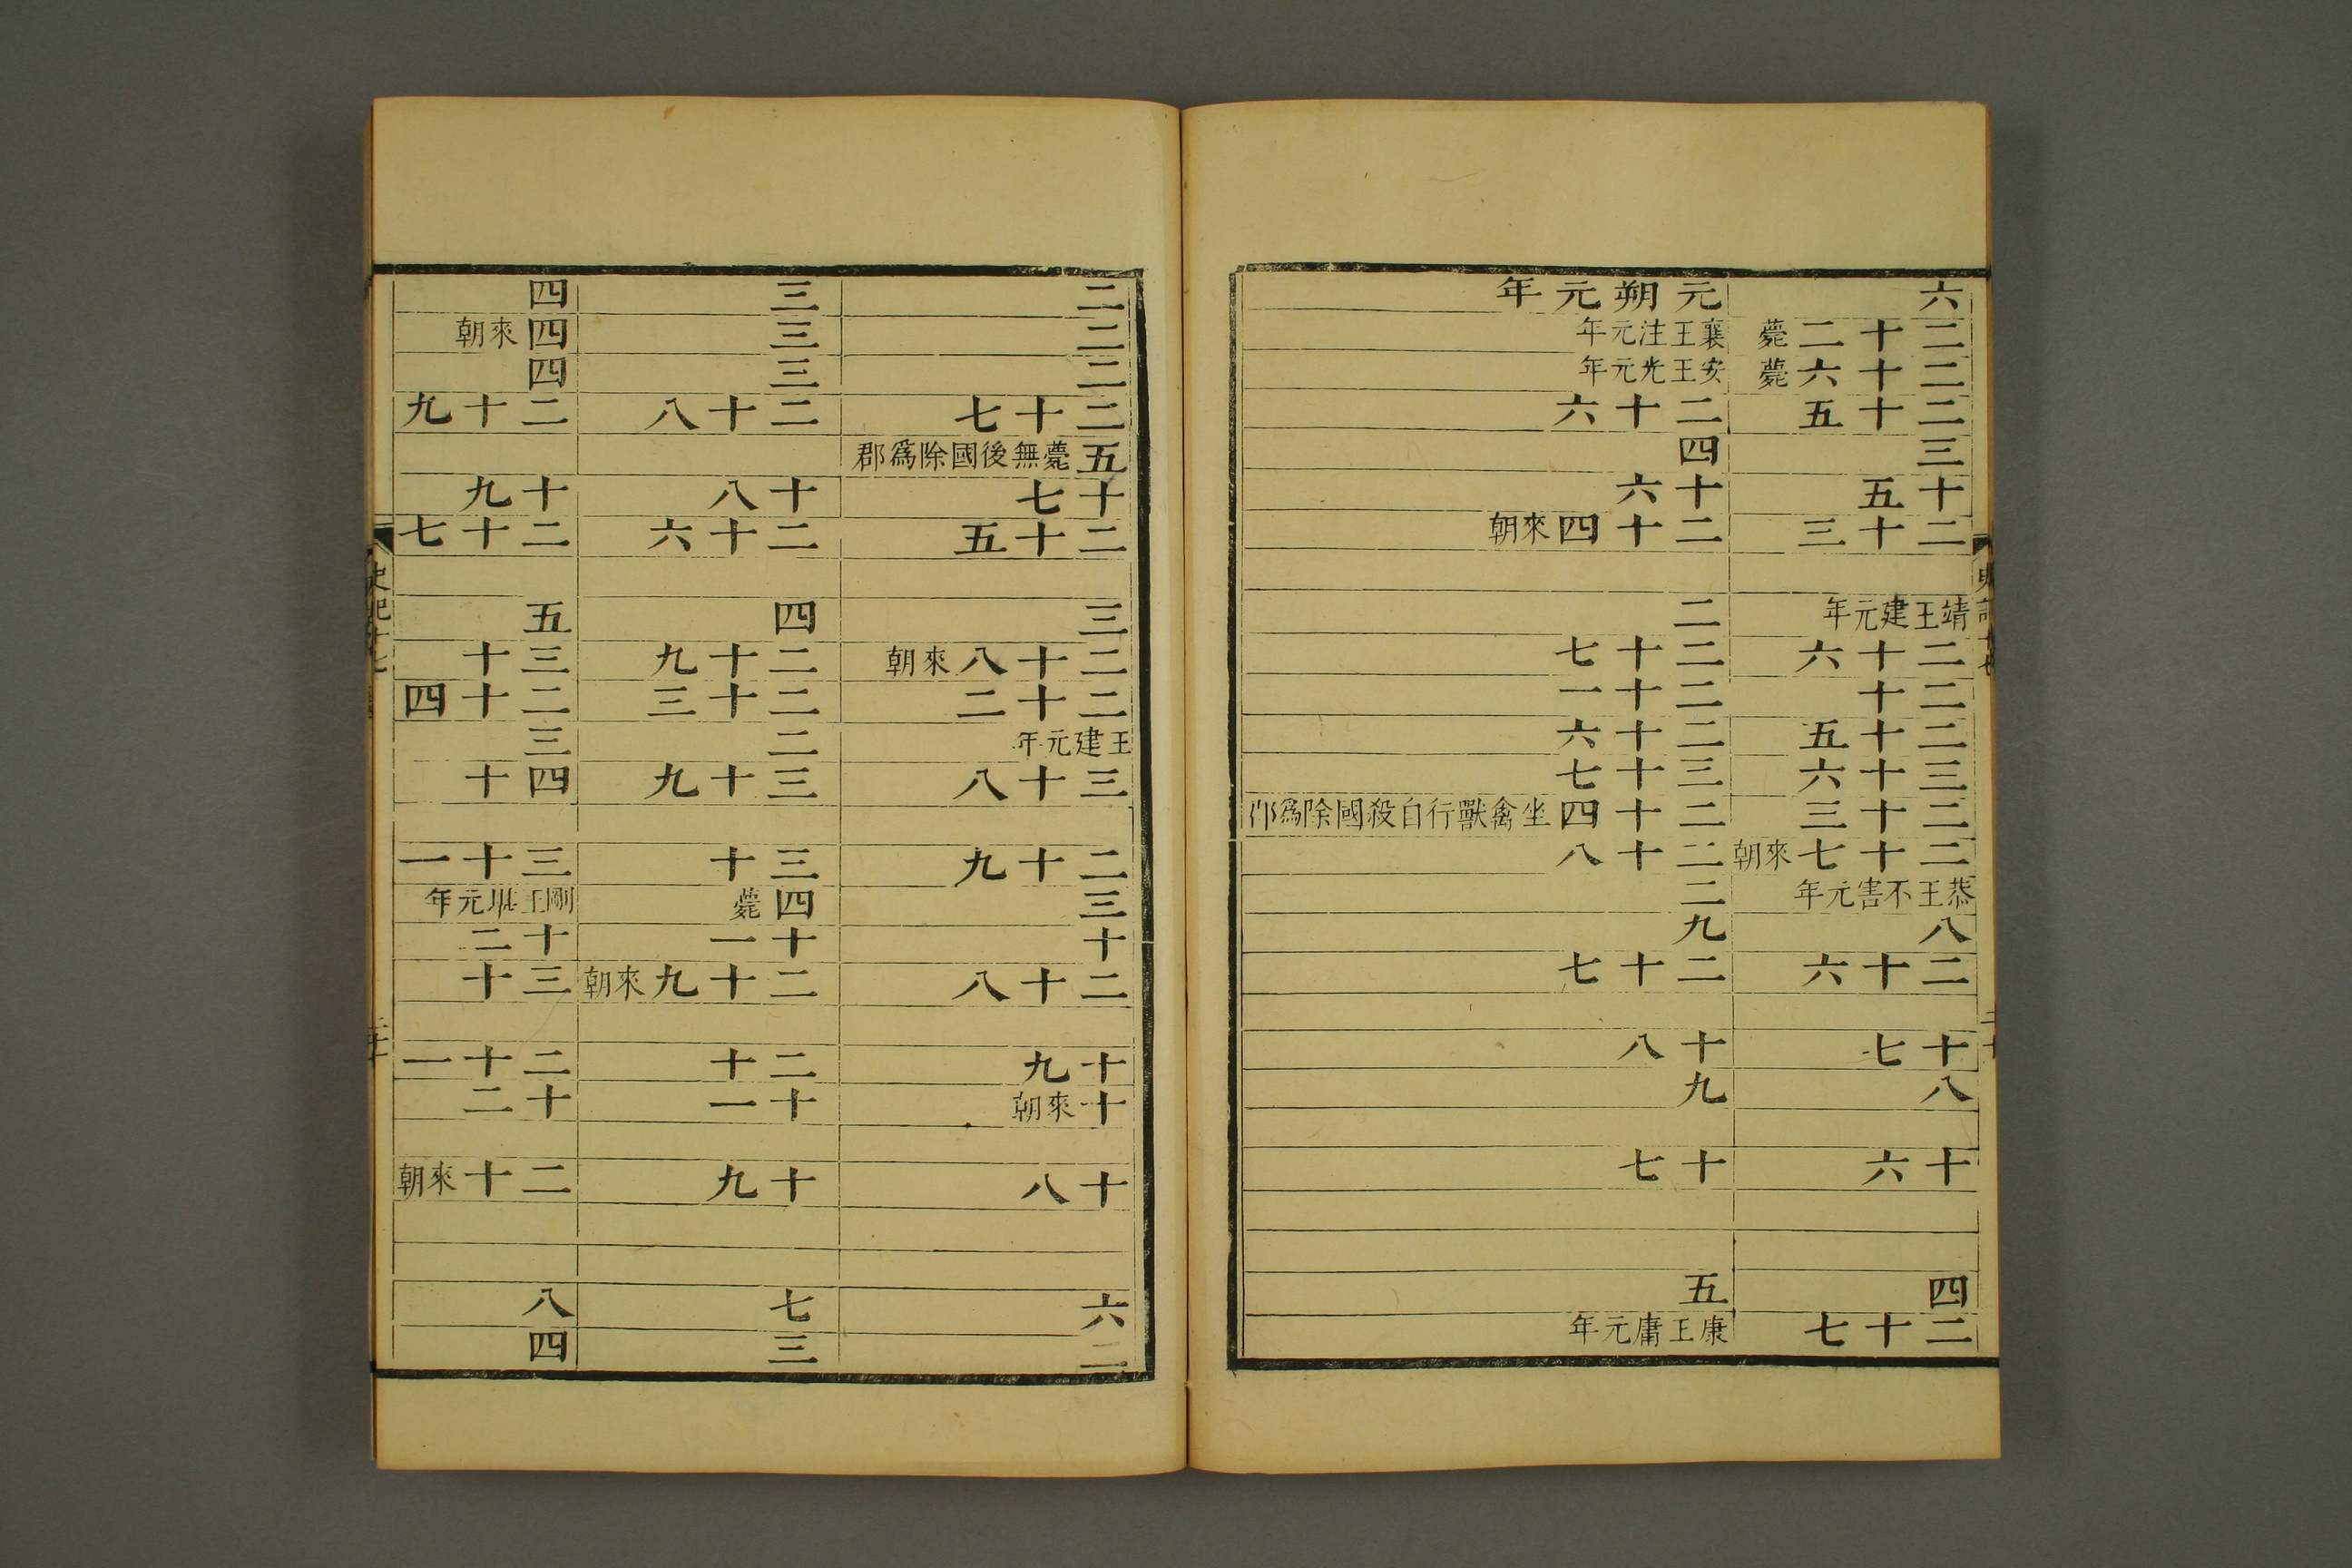 六
二十二薨
二十六薨
二十五
三
十五
二十三
靖王建元年
二十六
二十
二十五
三十六
二十三
二十七來朝
恭王不害元年
八
二十六
十七
八
十六
四
二十七
元朔元年
襄王注元年
安王光元年
二十六
四
十六
二十四來朝
二
二十七
二十一
二十六
三十七
二十四坐禽獸行自殺國除爲郡
二十八
二
九
二十七
十八
九
十七
五
康王庸元年
二
二
二
二十七
五薨無後國除爲郡
十七
二十五
三
二十八來朝
二十二
王建元年
三十八
二十九
三
十
二十八
十九
十來朝
十八
六
二
三
三
三
二十八
十八
二十六
四
二十九
二十三
二
三十九
三十
四薨
十一
二十九來朝
二十
十一
十九
七
三
四
四來朝
四
二十九
十九
二十七
五
三十
二十四
三
四十
三十一
剛王堪元年
十二
三十
二十一
十二
二十來朝
八
四
史記十七